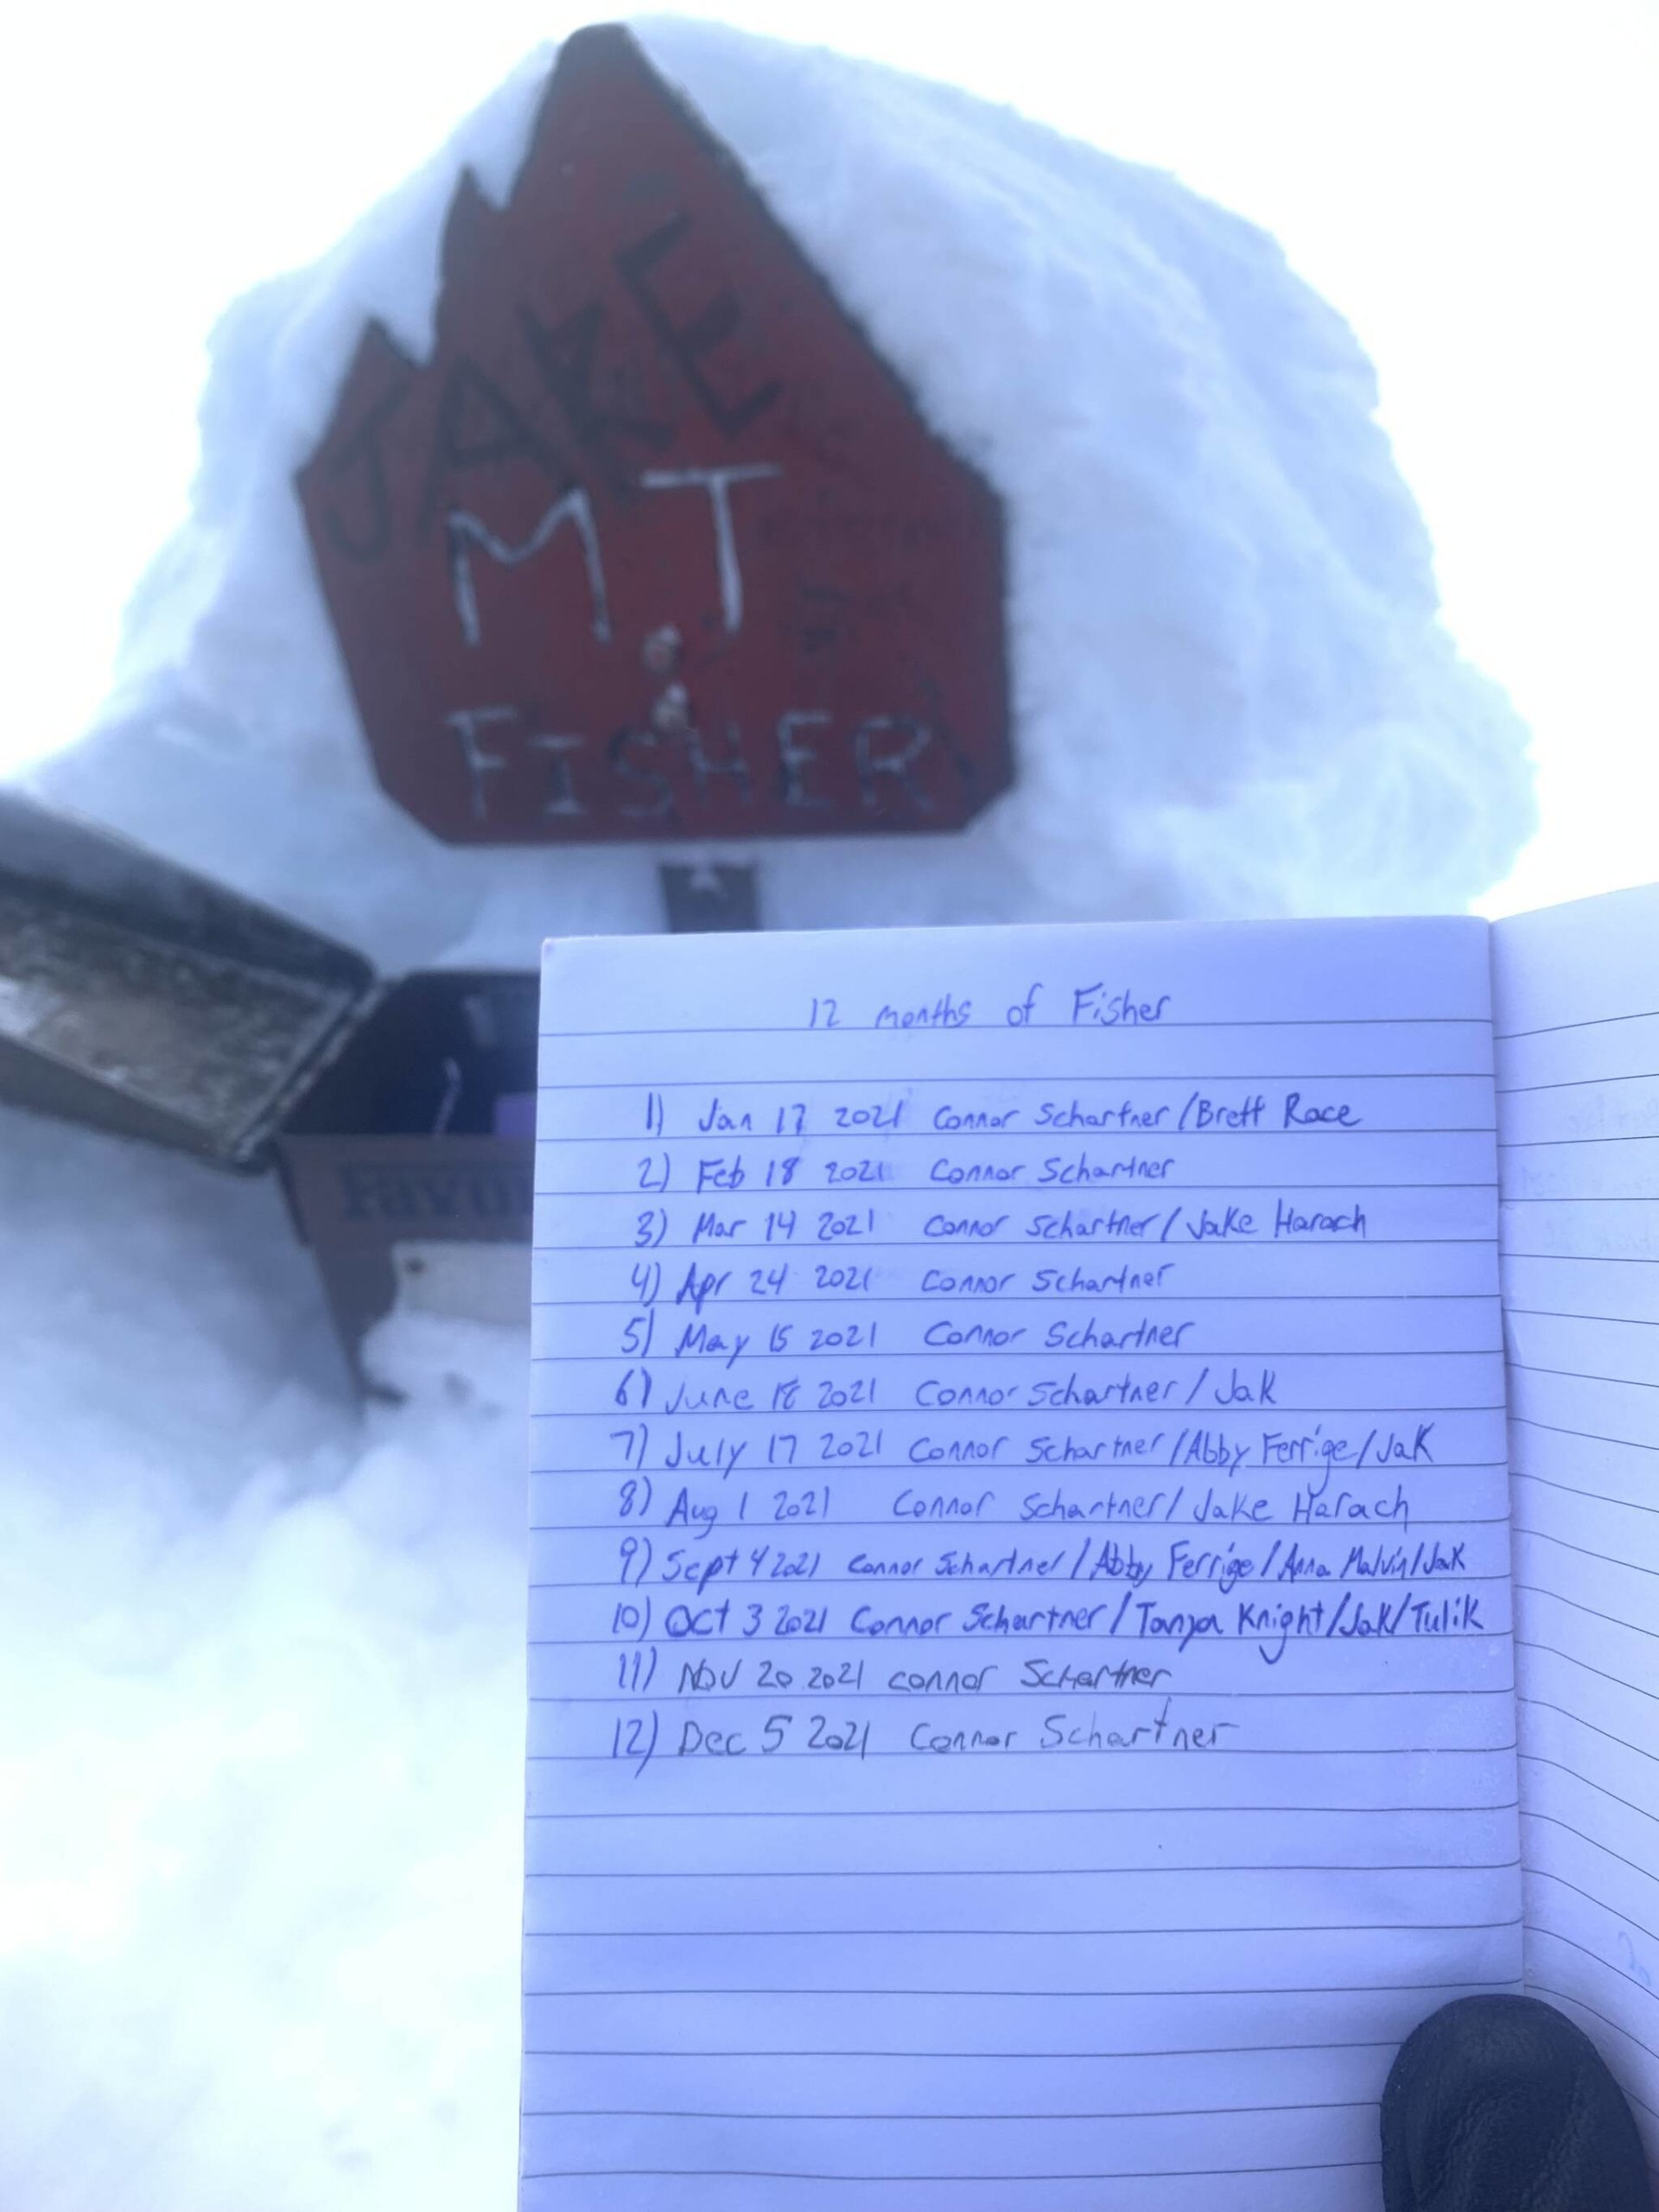 JAKE
MT
FISHER
12 months of Fisher
1) Jan 17 2021 Connor Schartner/Brett Race
2) Feb 18 2021 Connor Schartner
3) Mar 14 2021 Connor Schartner/Jake Harach
4) Apr 24 2021 Connor Schartner
5) May 15 2021 Connor Schartner
6) June 18 2021 Connor Schartner/Jak
7) July 17 2021 Connor Schartner/Abby Ferrige/Jak
8) Aug 1 2021 Connor Schartner/Jake Harach
9) Sept 4 2021 Connor Schartner/Abby Ferrige/Anna Malvin/Jak
10) Oct 3 2021 Connor Schartner/Tanya Knight/Jak/Tulik
11) Nov 20 2021 Connor Schartner
12) Dec 5 2021 Connor Schartner